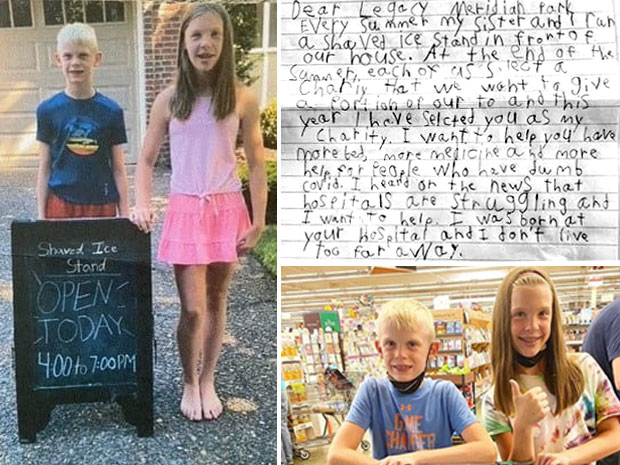 Shaved Ice
Stand
OPEN
TODAY
4:00 to 7:00PM
Dear Legacy Meridian Park
Every summer my sister and I run
a shaved ice stand in front of
our house. At the end of the
summer, each of us select a
Charity that we want to give
a portion of our to and this
year I have selected you as my
Charity. I want to help you have
more bed, more medicine and more
help for people who have dumb
covid. I heard on the news that
hospitals are struggling and
I want to help. I was born at
your hospital and I don't live
too far away.
GAME
CHANGER